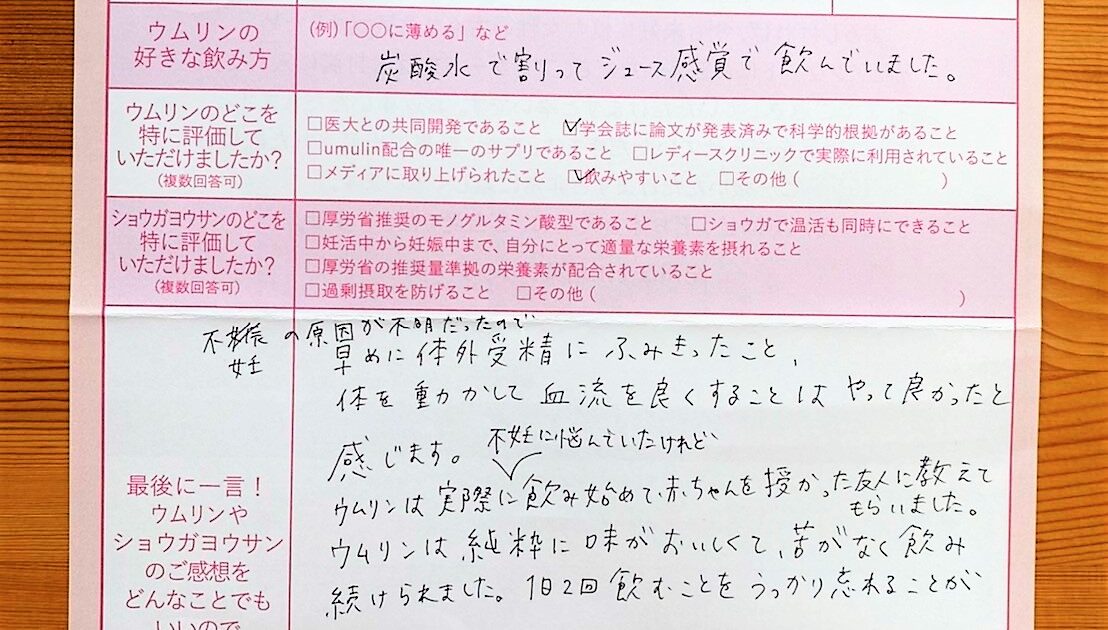 ウムリンの
好きな飲み方
(例)「〇〇に薄める」など
炭酸水で割ってジュース感覚で飲んでいました。
ウムリンのどこを
特に評価して
いただけましたか?
(複数回答可)
□医大との共同開発であること ☑学会誌に論文が発表済みで科学的根拠があること
□umulin配合の唯一のサプリであること □レディースクリニックで実際に利用されていること
□メディアに取り上げられたこと ☑飲みやすいこと □その他( )
ショウガヨウサンのどこを
特に評価して
いただけましたか?
(複数回答可)
□厚労省推奨のモノグルタミン酸型であること □ショウガで温活も同時にできること
□妊活中から妊娠中まで、自分にとって適量な栄養素を摂れること
□厚労省の推奨量準拠の栄養素が配合されていること
□過剰摂取を防げること □その他( )
最後に一言!
ウムリンや
ショウガヨウサン
のご感想を
どんなことでも
いいので
不妊の原因が不明だったので
早めに体外受精にふみきったこと、
体を動かして血流を良くすることはやって良かったと
感じます。
不妊に悩んでいたけれど、
ウムリンは実際に飲み始めて、赤ちゃんを授かった友人に教えて
もらいました。
ウムリンは純粋に味がおいしくて、苦がなく飲み
続けられました。1日2回飲むことをうっかり忘れることが